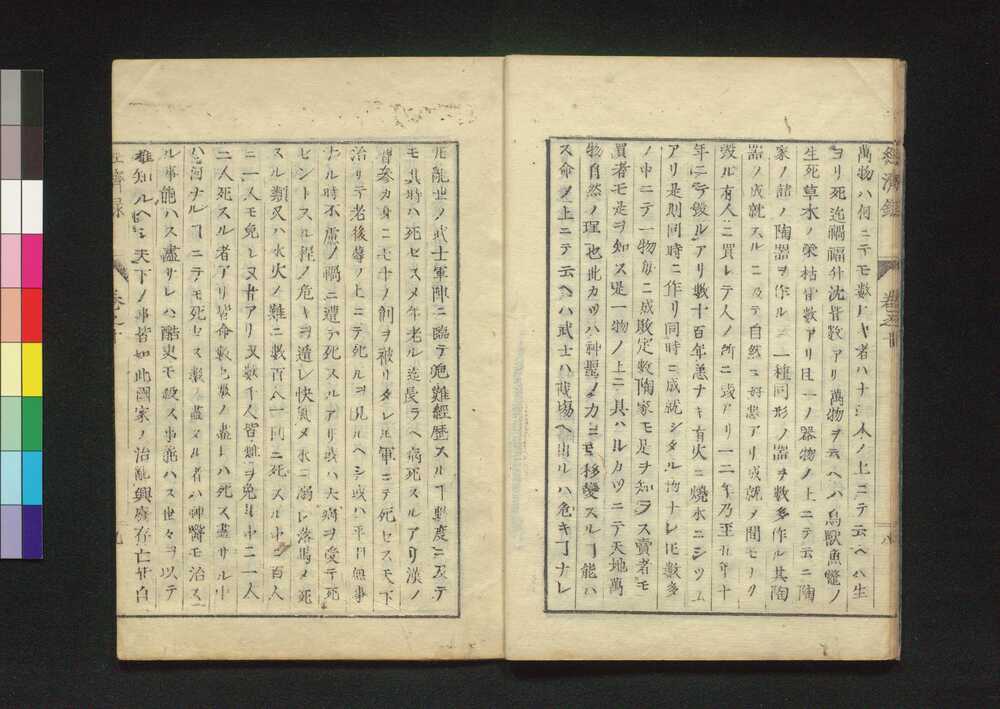 萬物ハ何ニテモ數ナキ者ハナシ人ノ上ニテ云ヘハ生
ヨリ死迄禍福升沈皆數アリ萬物ヲ云ヘハ鳥獸魚鼈ノ
生死草木ノ榮枯皆數アリ且一ノ器物ノ上ニテ云ニ陶
家ノ諸ノ陶器ヲ作ルニ一種同形ノ器ヲ數多作ル其陶
器ノ成就スルニ及テ自然ニ好惡アリ成就ノ間モナク
毀ル有人ニ買レテ人ノ所ニ或アリ一二年乃至五年十
年ニテ毀ルアリ數十百年恙ナキ有火ニ燒水ニシツム
アリ是則同時ニ作リ同時ニ成就シタル物ナレ𪜈數多
ノ中ニテ一物每ニ成敗定數陶家モ是ヲ知ラス賣者モ
買者モ是ヲ知ス是一物ノ上ニ具ハルカツニテ天地萬
物自然ノ理也此カツハ神聖ノ力ニモ移變スルヿ能ハ
ス命ノ上ニテ云ヘハ武士ハ戰場ヘ出ルハ危キヿナレ
𪜈亂世ノ武士軍陣ニ臨テ危難經歷スルヿ數度ニ及テ
モ其時ハ死セスメ年老ル迄長ラヘ病死スルアリ漢ノ
曹參カ身ニ七十ノ創ヲ被リタレ𪜈軍ニテ死セス天下
治リテ老後蓐ノ上ニテ死ルヲ見ルヘシ或ハ平日無事
ナル時不慮ノ禍ニ遭テ死スルアリ或ハ大病ヲ受テ死
セントスル程ノ危キヲ遁レ快氣メ水ニ溺レ落馬メ死
スル類又ハ水火ノ難ニ數百人一同ニ死スル中ニ百人
ニ一人モ免レヌ者アリ又數千人皆難ヲ免ル中ニ一人
二人死スル者アリ皆命數也數ノ盡レハ死ス盡サル中
ハ何ナルヿニテモ死セス數ノ盡タル者ハ神醫モ治ス
ル事能ハス盡サレハ酷吏モ殺ス事能ハス世々ヲ以テ
推知ルヘシ天下ノ事皆如此國家ノ治亂興廢存亡皆自
經濟錄
卷之十
八
經濟錄
卷之十
九